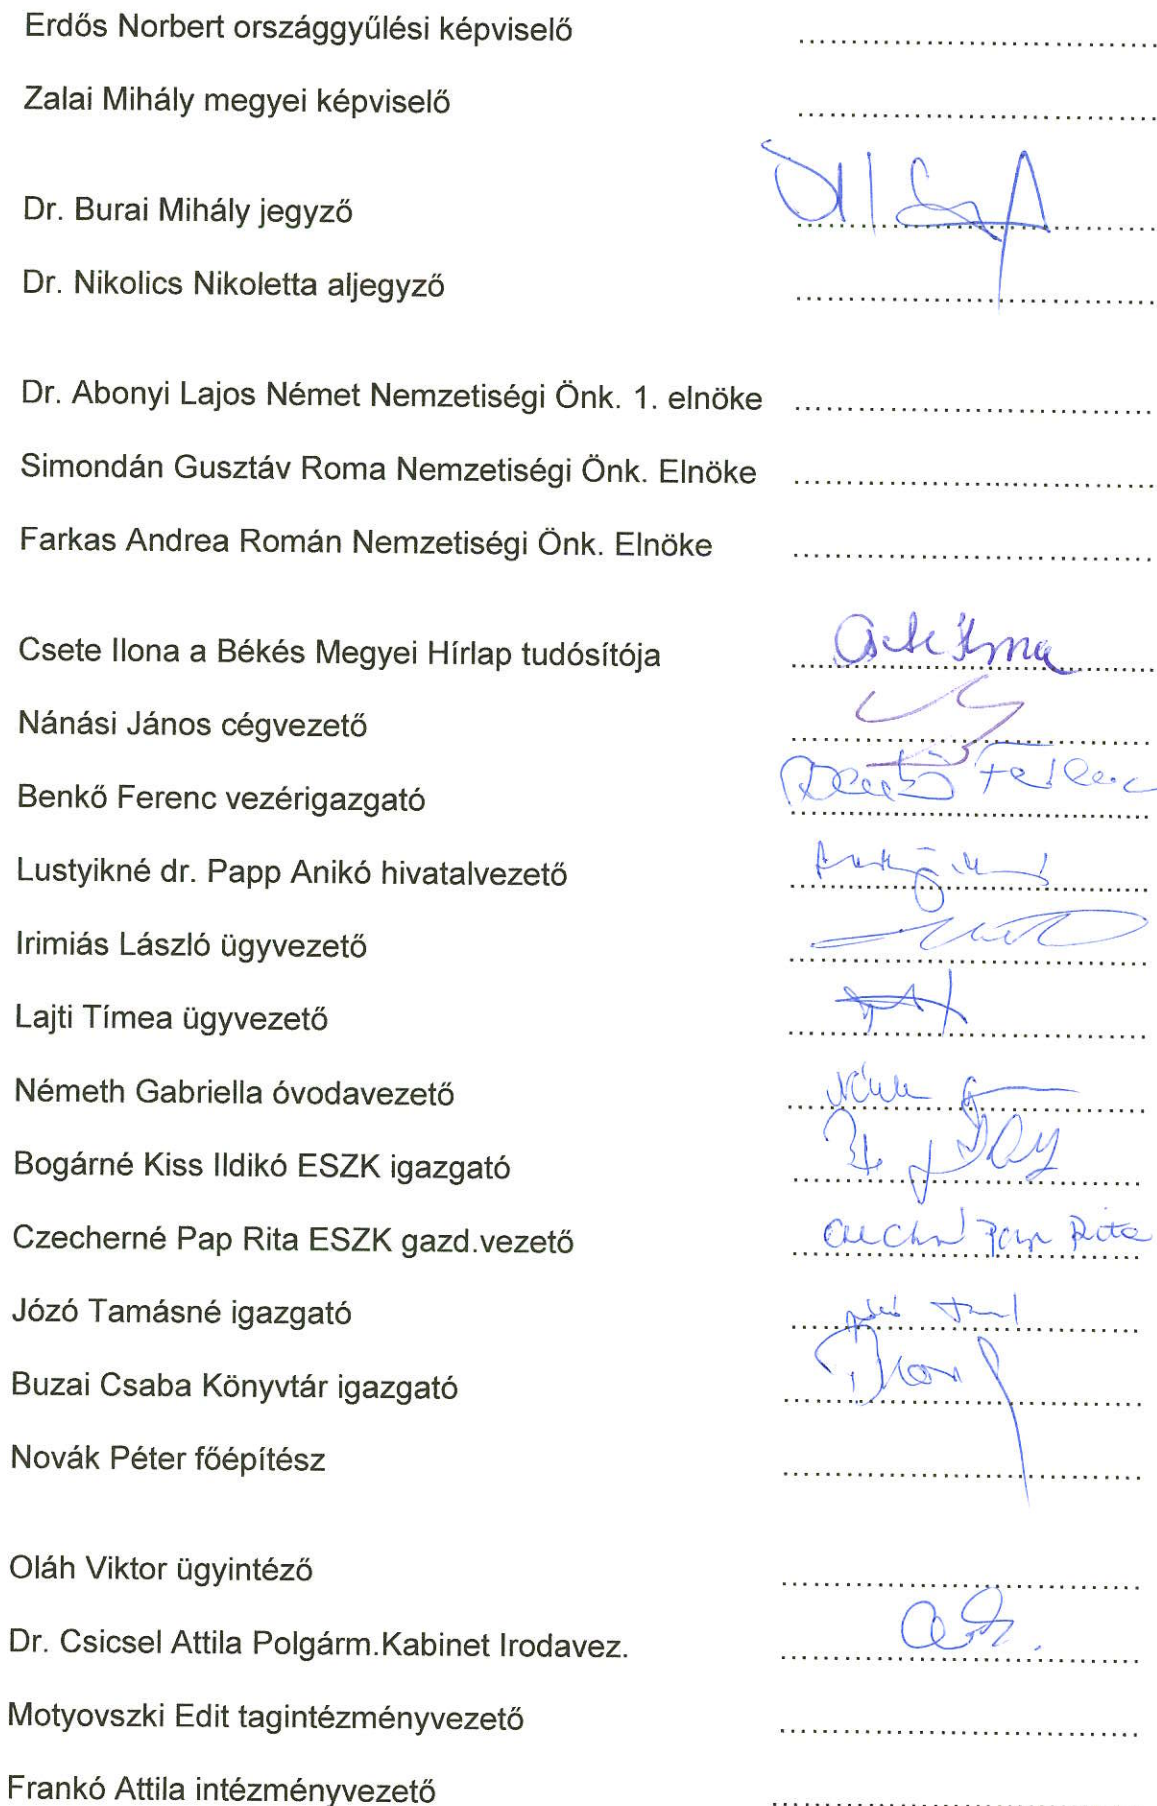 Erdős Norbert országgyűlési képviselő ................................
Zalai Mihály megyei képviselő ................................
Dr. Burai Mihály jegyző ................................
Dr. Nikolics Nikoletta aljegyző ................................
Dr. Abonyi Lajos Német Nemzetiségi Önk. 1. elnöke ................................
Simondán Gusztáv Roma Nemzetiségi Önk. Elnöke ................................
Farkas Andrea Román Nemzetiségi Önk. Elnöke ................................
Csete Ilona a Békés Megyei Hírlap tudósítója Csete Ilona
Nánási János cégvezető ................................
Benkő Ferenc vezérigazgató Benkő Ferenc
Lustyikné dr. Papp Anikó hivatalvezető ................................
Irimiás László ügyvezető ................................
Lajti Tímea ügyvezető ................................
Németh Gabriella óvodavezető ................................
Bogárné Kiss Ildikó ESZK igazgató ................................
Czecherné Pap Rita ESZK gazd.vezető Pap Rita
Józó Tamásné igazgató ................................
Buzai Csaba Könyvtár igazgató ................................
Novák Péter főépítész ................................
Oláh Viktor ügyintéző ................................
Dr. Csicsel Attila Polgárm.Kabinet Irodavez. ................................
Motyovszki Edit tagintézményvezető ................................
Frankó Attila intézményvezető ................................